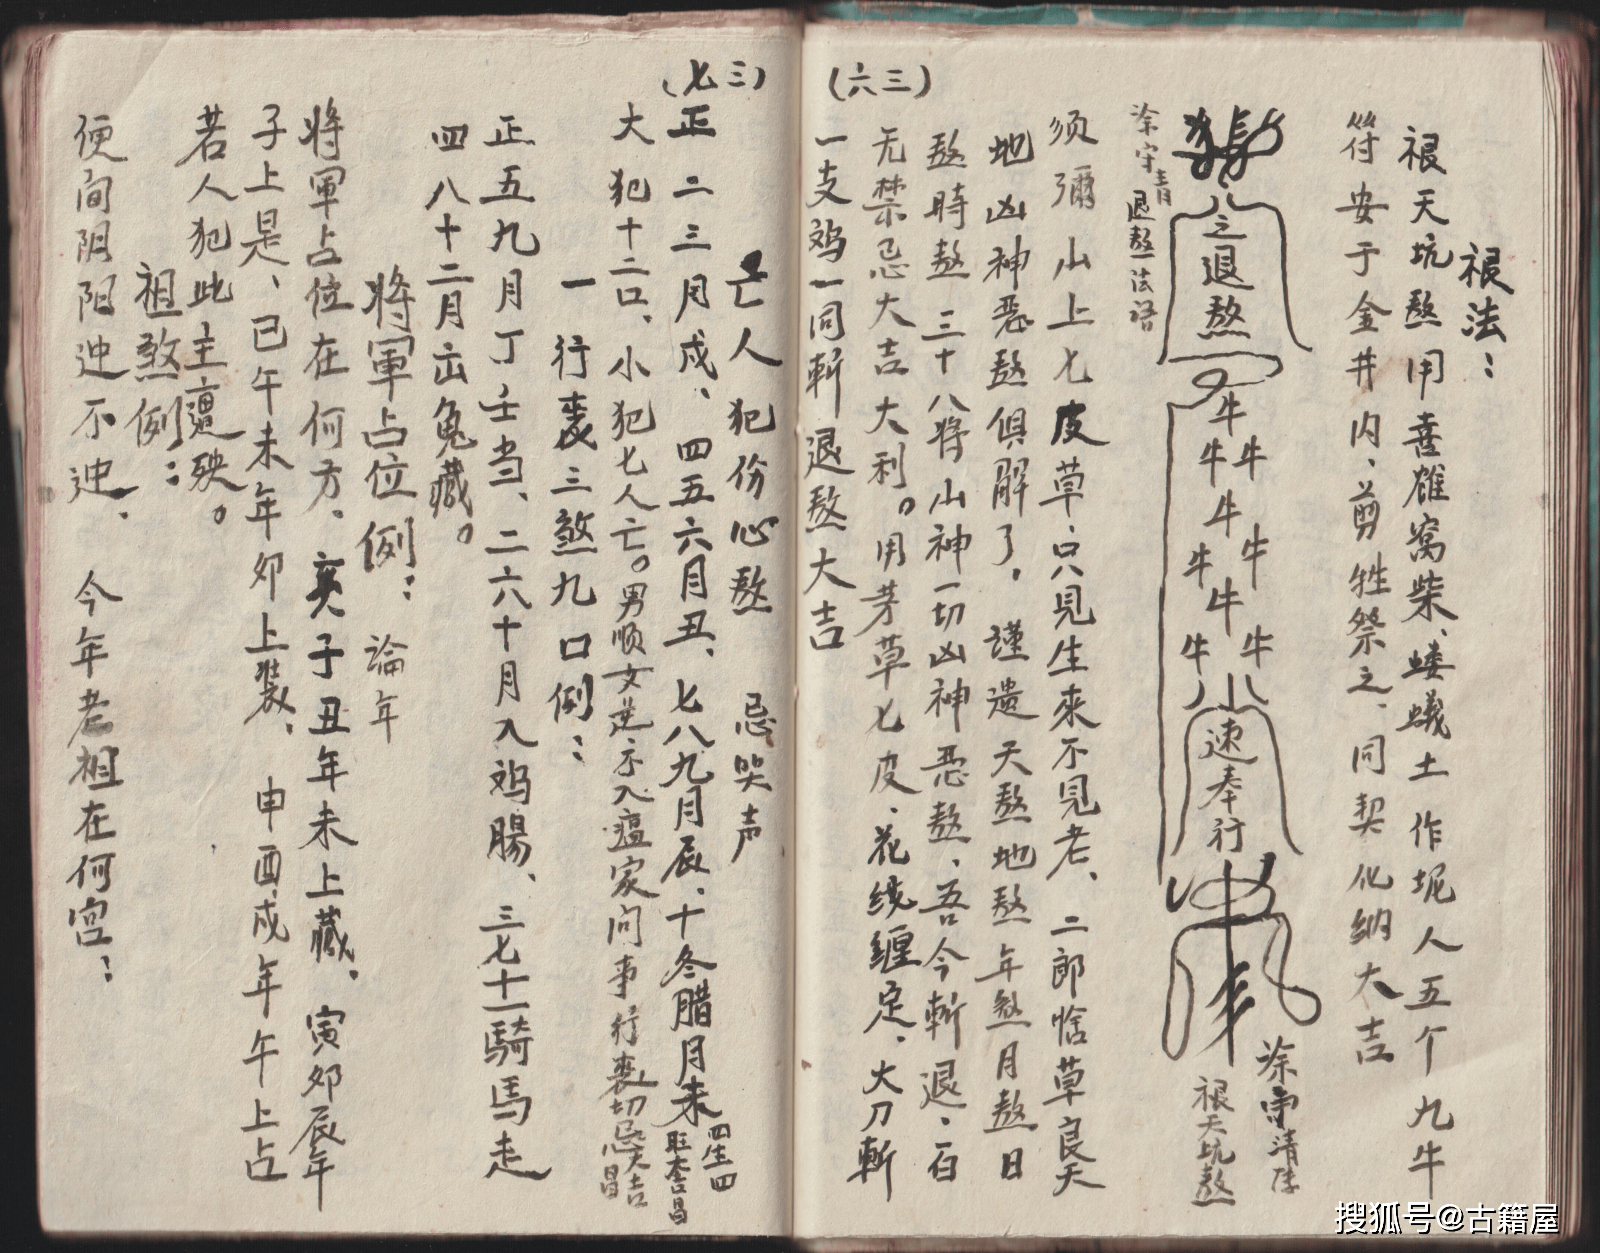 (六三)
禐法：
禐天坑煞用喜雄窩柴、蝼蟻土作坭人五个九牛
符安于金井内、剪牲祭之、同契化纳大吉
之退熬
牛牛牛牛牛牛牛牛牛
小
速奉行
禐天坑熬
退熬法语
须彌山上七皮草、只見生來不見老、二郎啥草良天
地凶神恶熬俱解了。謹遣天熬地熬年煞月熬日
熬時熬三十八將山神一切凶神恶熬、吾今斬退、百
无禁忌大吉大利。用茅草七皮、花线缠定、大刀斬
一支鸡一同斬退熬大吉
(七三)
亡人犯份心熬 忌哭声
正二三月戍、四五六月丑、七八九月辰、十冬腊月未
大犯十二口、小犯七人亡。男顺女逆示入瘟家问事行丧切忌大吉昌
一行丧三煞九口例：
正五九月丁壬当、二六十月入鸡腸、三七十一騎馬走
四八十二月出兔藏。
將軍占位例： 論年
將軍占位在何方、亥子丑年未上藏、寅卯辰年
子上是、巳午未年卯上裝、申酉戍年午上占
若人犯此主遭殃。
祖煞例：
便间阴阳迚不迚、今年老祖在何宫：
搜狐号@古籍屋